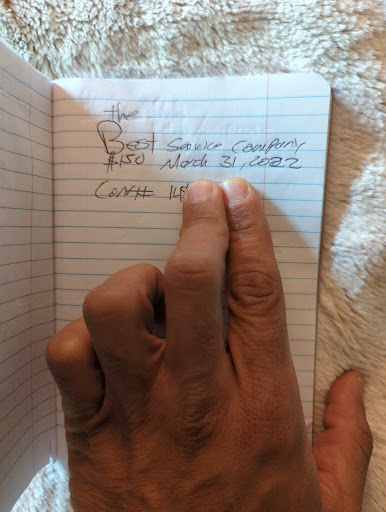 the
Best Service Company
$150 March 31, 2022
Conf#